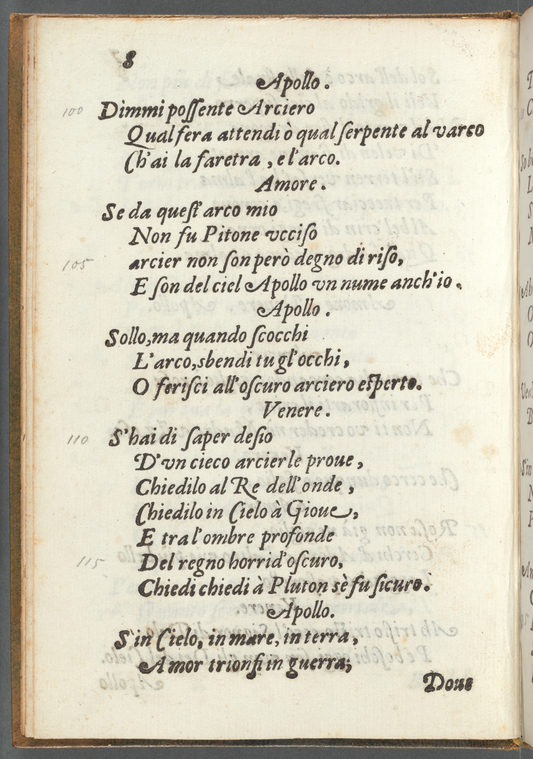 8
Apollo.
100 Dimmi poſſente Arciero
Qual fera attendi ò qual ſerpente al varco
Ch'ai la faretra, e l'arco.
Amore.
Se da queſt'arco mio
Non fu Pitone vcciſo
105 arcier non ſon però degno di riſo,
E ſon del ciel Apollo vn nume anch'io.
Apollo.
Sollo, ma quando ſcocchi
L'arco, sbendi tu gl'occhi,
O feriſci all'oscuro arciero eſperto.
Venere.
110 S'hai di ſaper deſio
D'vn cieco arcier le proue,
Chiedilo al Re dell'onde,
Chiedilo in Cielo à Gioue,
E tra l'ombre profonde
115 Del regno horrid'oſcuro,
Chiedi chiedi à Pluton s'è fu ſicuro.
Apollo.
S'in Cielo, in mare, in terra,
Amor trionfi in guerra;
Doue